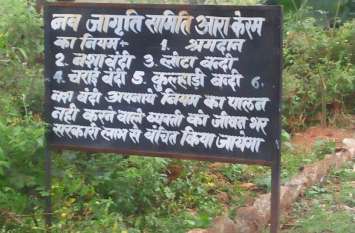 नव जागृति समिति आरा केरम
का नियम:- 1. श्रमदान
2. नशाबंदी 3. लोटा बन्दी
4. चराई बंदी 5. कुल्हाड़ी बन्दी 6.
बंदी अपनाये नियम का पालन
नहीं करने वाले व्यक्ती को जीवन भर
सरकारी लाभ से वंचित किया जायेगा